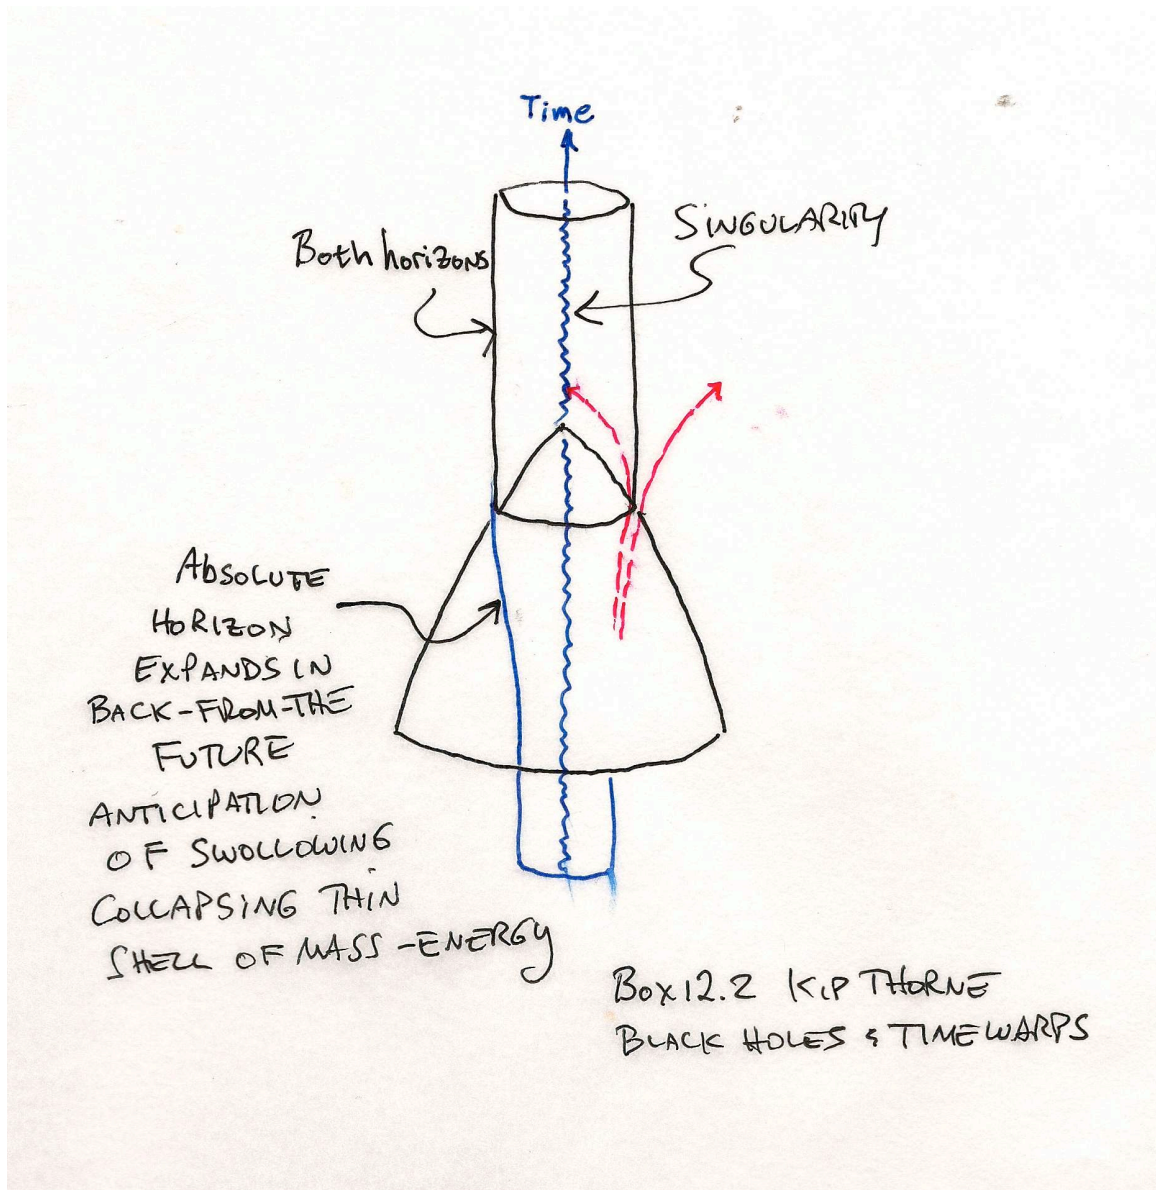 Time
SINGULARITY
Both horizons
ABSOLUTE
HORIZON
EXPANDS IN
BACK-FROM-THE
FUTURE
ANTICIPATION
OF SWOLLOWING
COLLAPSING THIN
SHELL OF MASS-ENERGY
BOX 12.2 KIP THORNE
BLACK HOLES & TIMEWARPS